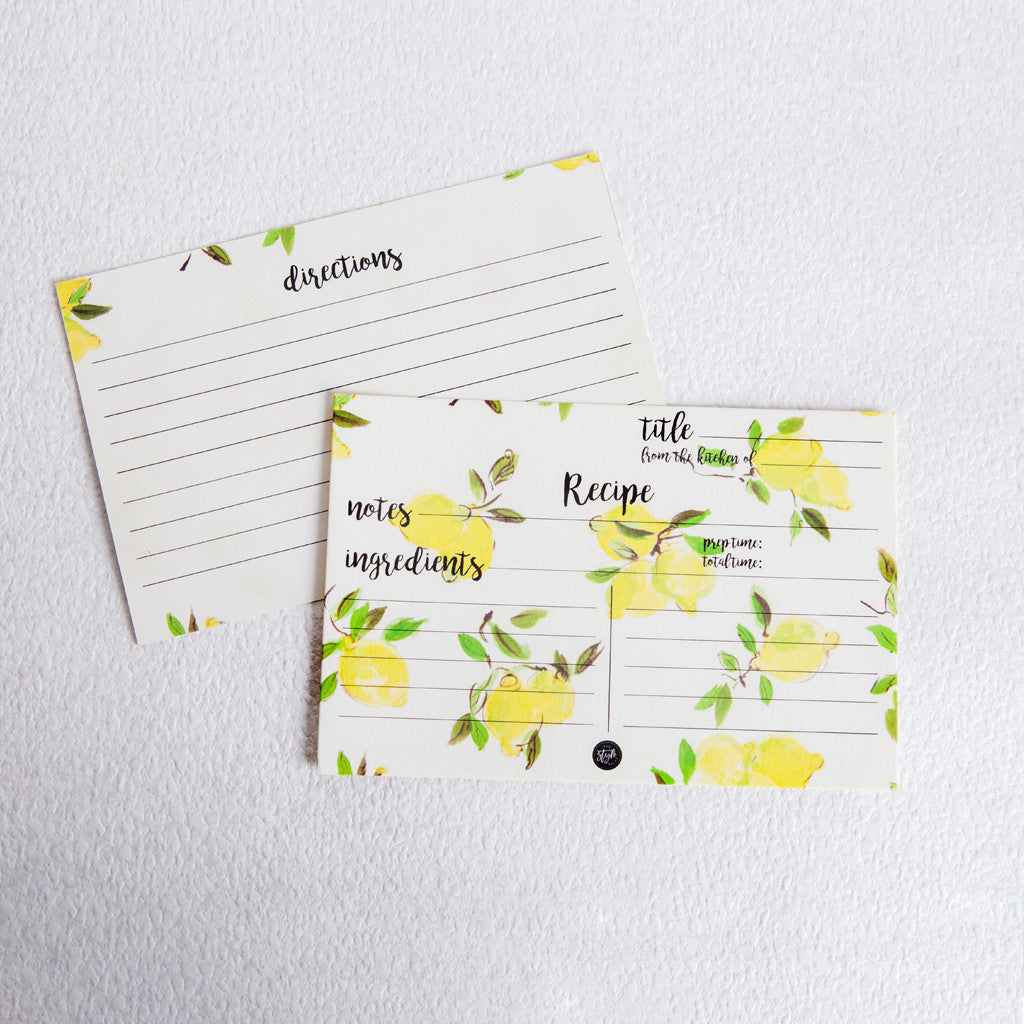 directions
title
from the kitchen of
Recipe
notes
prep time:
total time:
ingredients
style